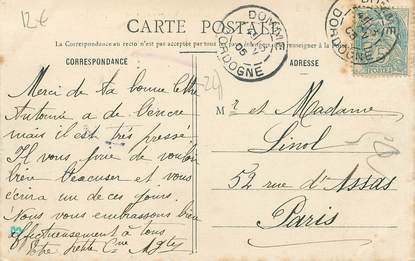 12€
CARTE POSTALE
La Correspondance au recto n'est pas acceptée par tous
DOMME
DORDOGNE
CORRESPONDANCE
ADRESSE
POSTES
Merci de ta bonne lettre
Antonin a de
mais il est très pressé
Il vous prie de vouloir
bien l'excuser et vous
écrira un de ces jours.
Nous vous embrassons bien
affectueusement à tous
Votre petite Cne
M r et Madame
Linol
52 rue d'Assas
Paris